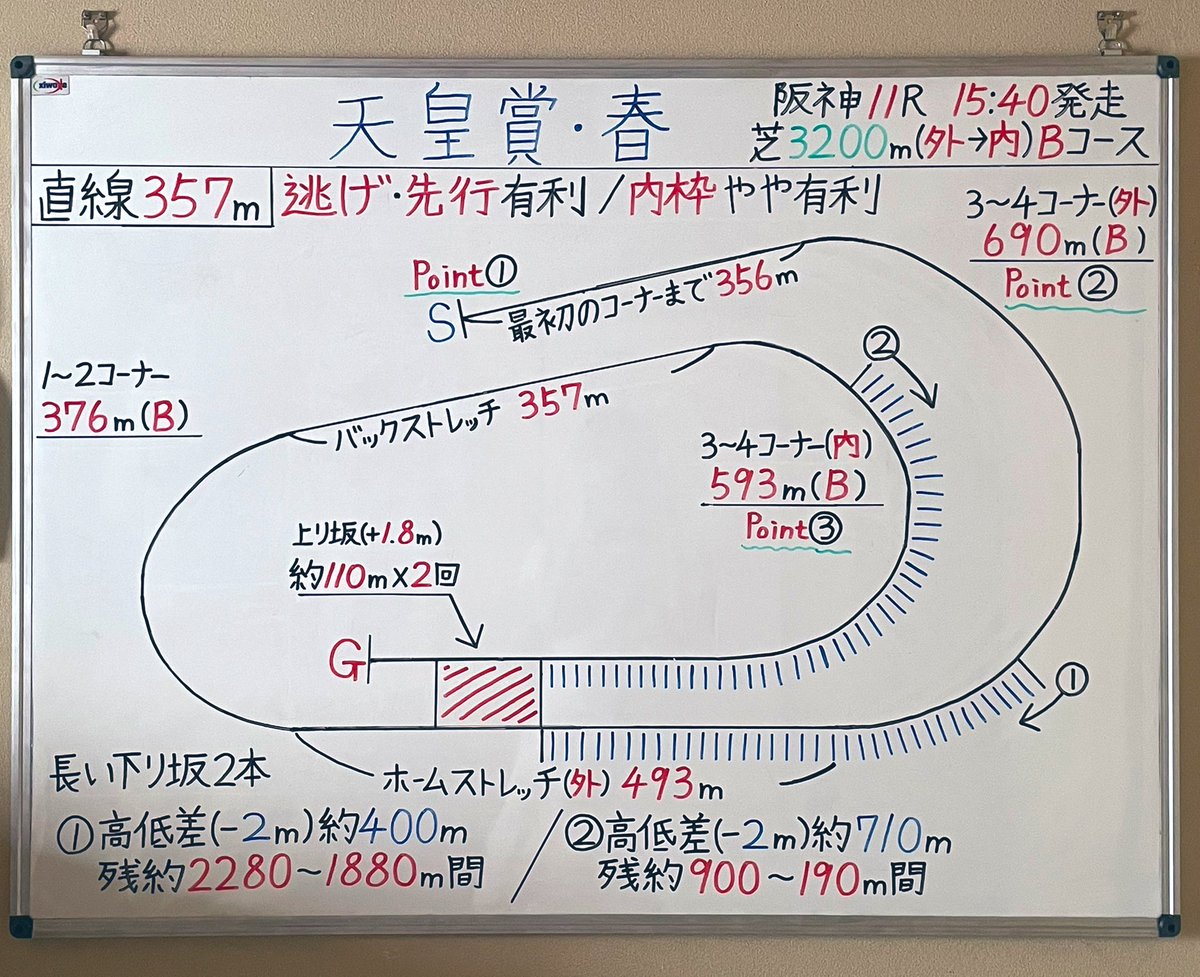 xiwode
天皇賞・春
阪神11R 15:40発走
芝3200m(外→内)Bコース
直線357m
逃げ・先行有利/内枠やや有利
3~4コーナー(外)
690m(B)
Point②
Point①
S
最初のコーナーまで356m
②
1~2コーナー
376m(B)
バックストレッチ 357m
3~4コーナー(内)
593m(B)
Point③
上り坂(+1.8m)
約110m×2回
G
①
長い下り坂2本
ホームストレッチ(外) 493m
①高低差(-2m)約400m
残約2280~1880m間
/
②高低差(-2m)約710m
残約900~190m間